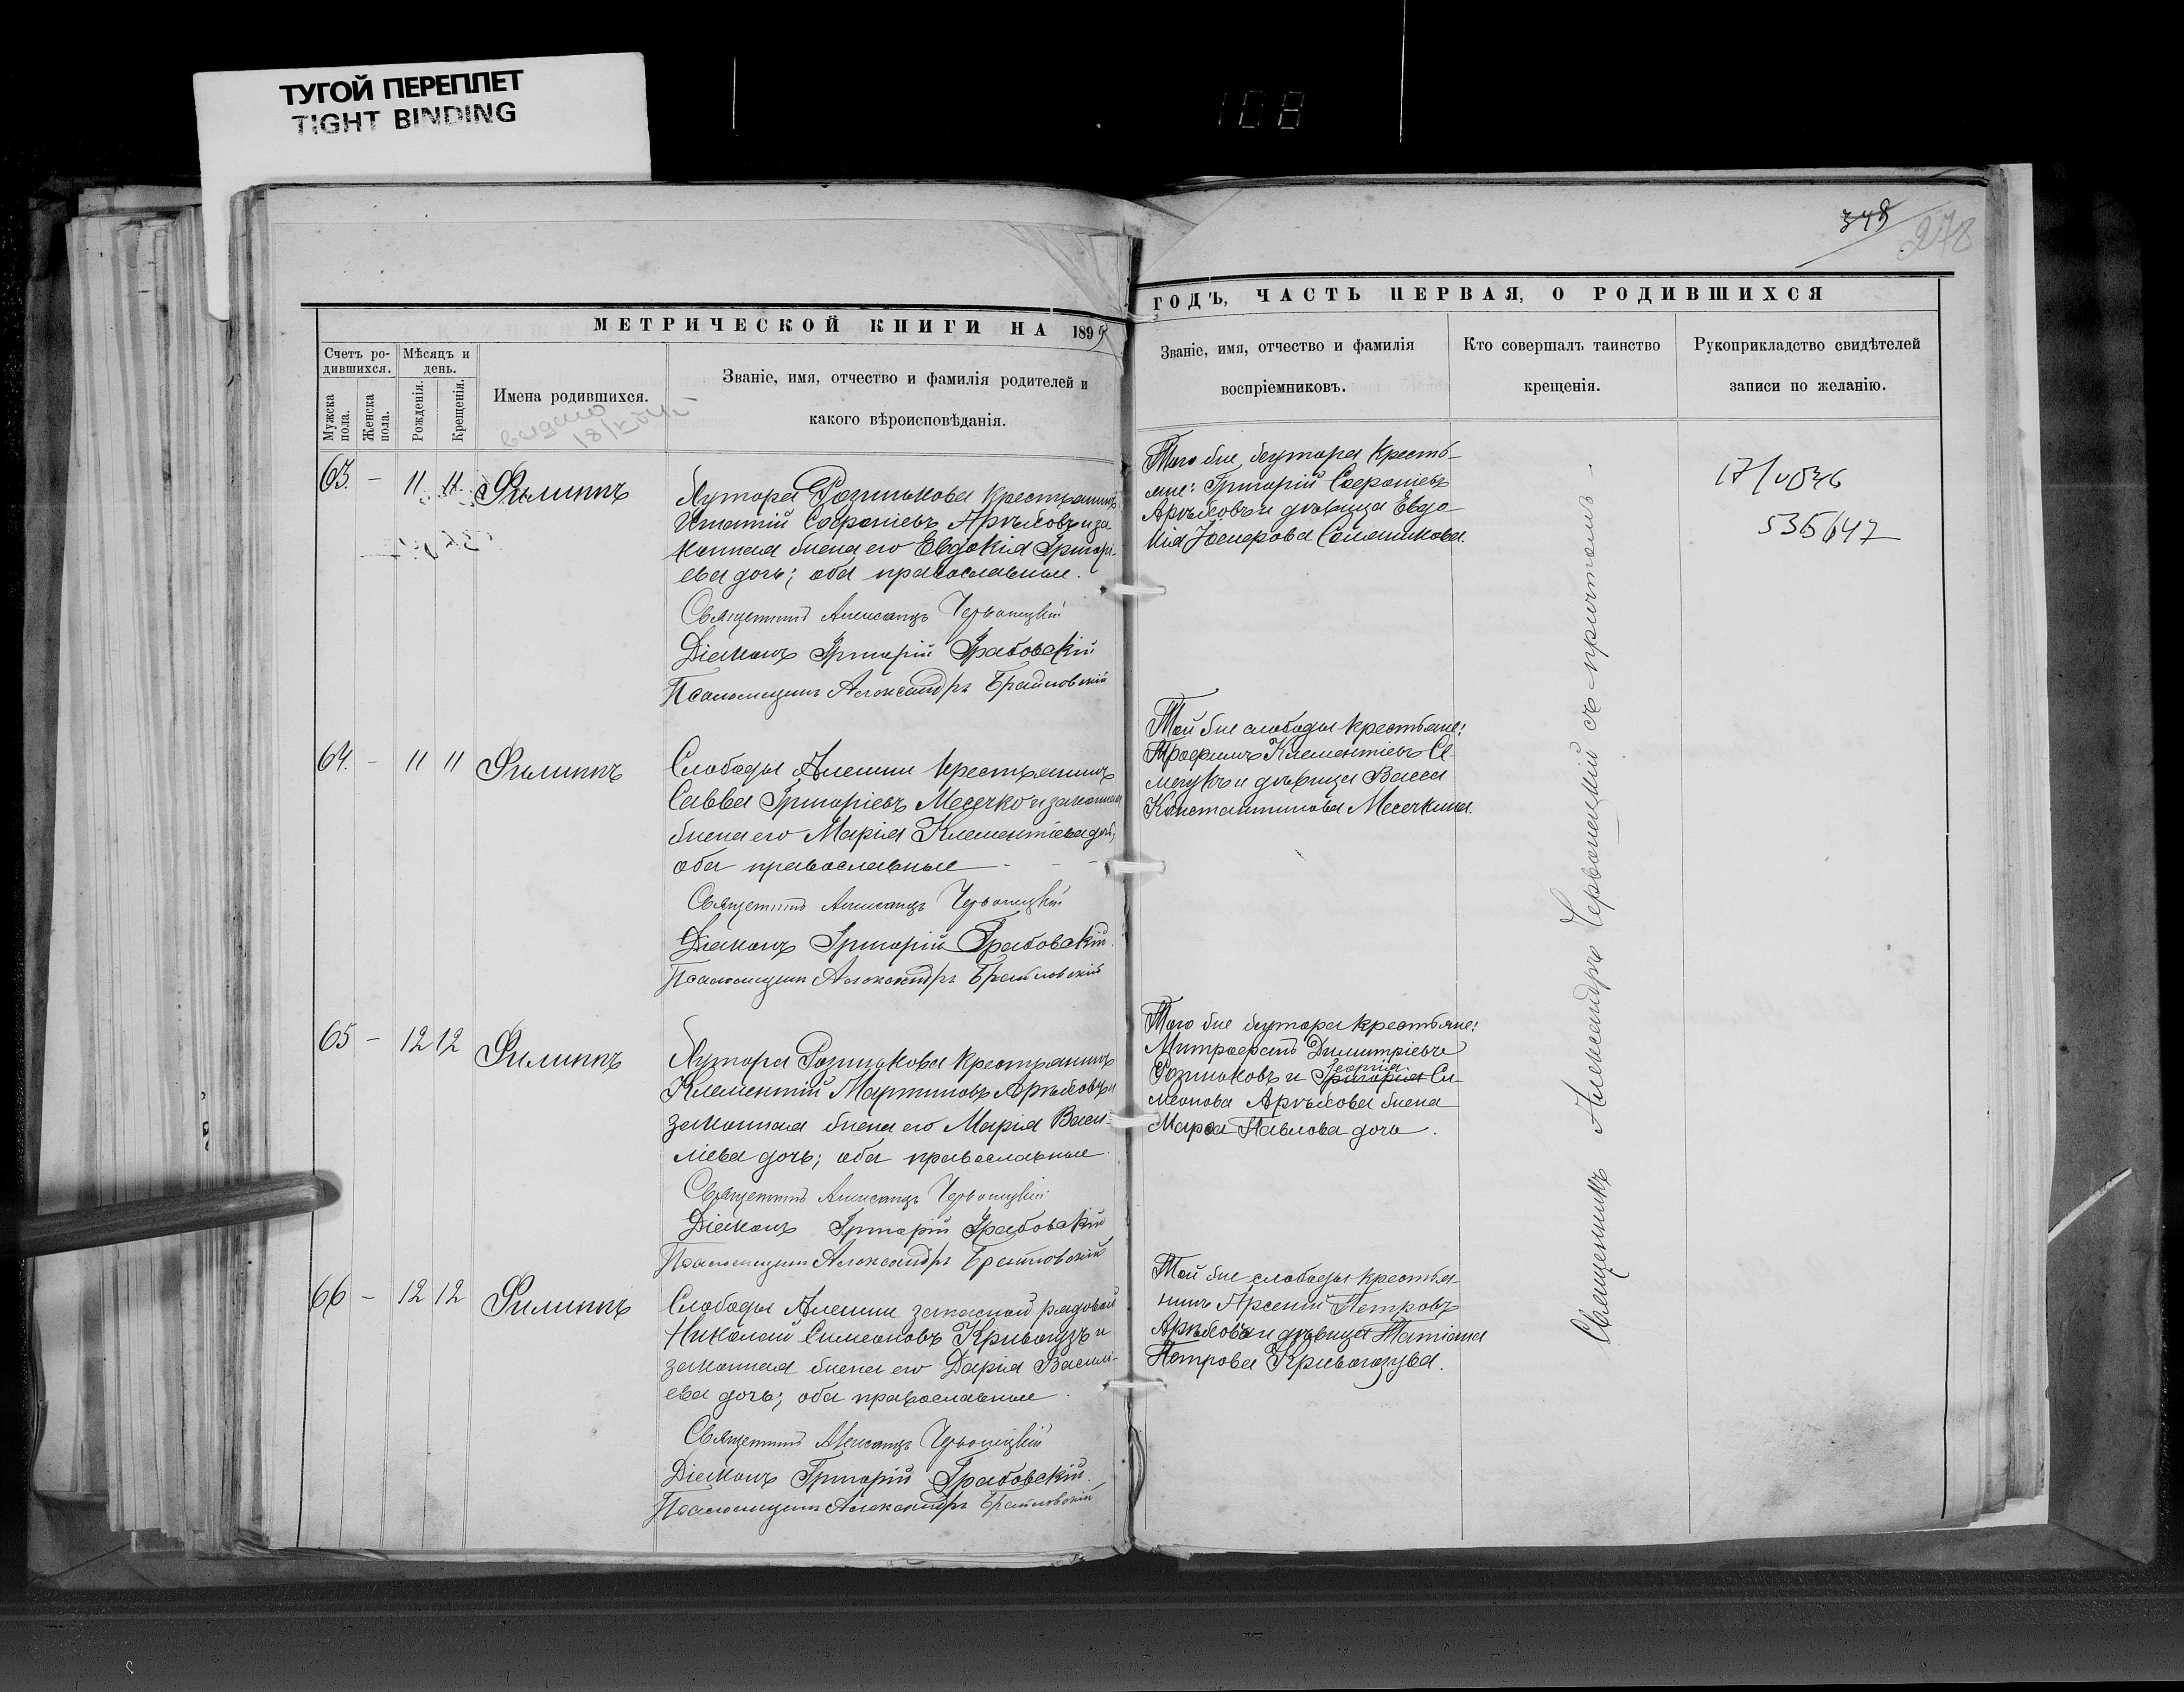 ТУГОЙ ПЕРЕПЛЕТ
TIGHT BINDING
108
349
278
МЕТРИЧЕСКОЙ КНИГИ НА 1899
ГОДЪ, ЧАСТЬ ПЕРВАЯ, О РОДИВШИХСЯ
Счетъ ро-
дившихся.
Мужска пола.
Женска пола.
Мѣсяцъ и
день.
Рожденія.
Крещенія.
Имена родившихся.
Званіе, имя, отчество и фамилія родителей и
какого вѣроисповѣданія.
Званіе, имя, отчество и фамилія
воспріемниковъ.
Кто совершалъ таинство
крещенія.
Рукоприкладство свидѣтелей
записи по желанію.
выдано
63. - 11 11 Филиппъ
Хутора Розлиюкова крестьянинъ
Игнатій Софоніевъ Арѣховъ и за-
конная жена его Евдокія Григорі-
ева дочь; оба православные.
Священникъ Александръ Червонецкій
Діаконъ Григорій Грабовскій
Псаломщикъ Александръ Браиловскій
Того же хутора кресть-
яне: Григорій Софоніевъ
Арѣховъ и дѣвица Евдо-
кія
535647
64. - 11 11 Филиппъ
Слободы Алешки крестьянинъ
Савва Григоріевъ Месечко и законная
жена его Марія Клементіева дочь,
оба православные
Священникъ Александръ Червонецкій
Діаконъ Григорій Грабовскій
Псаломщикъ Александръ Браиловскій
Той же слободы крестьяне:
Трофимъ Климентіевъ Се-
и дѣвица Васса
Константинова Месечкина.
65 - 12 12 Филиппъ
Хутора крестьянинъ
Клементій Мартиновъ Арѣховъ и
законная жена его Марія Васи-
ліева дочь; оба православные
Священникъ Александръ Червонецкій
Діаконъ Григорій Грабовскій
Псаломщикъ Александръ Браиловскій
Того же хутора крестьяне:
Митрофанъ Димитріевъ
и Григорія Георгія Си-
меонова Арѣхова жена
Марѳа Павлова дочь.
66 - 12 12 Филиппъ
Слободы Алешки запасной рядовой
Николай Симеоновъ Кривогузъ и
законная жена его Дарія Васили-
ева дочь; оба православные.
Священникъ Александръ Червонецкій
Діаконъ Григорій Грабовскій.
Псаломщикъ Александръ Браиловскій
Той же слободы крестья-
нинъ Арсеній Петровъ
Арѣховъ и дѣвица Татіана
Петрова Кривогузова.
Священникъ Александръ Червонецкій съ причтомъ.